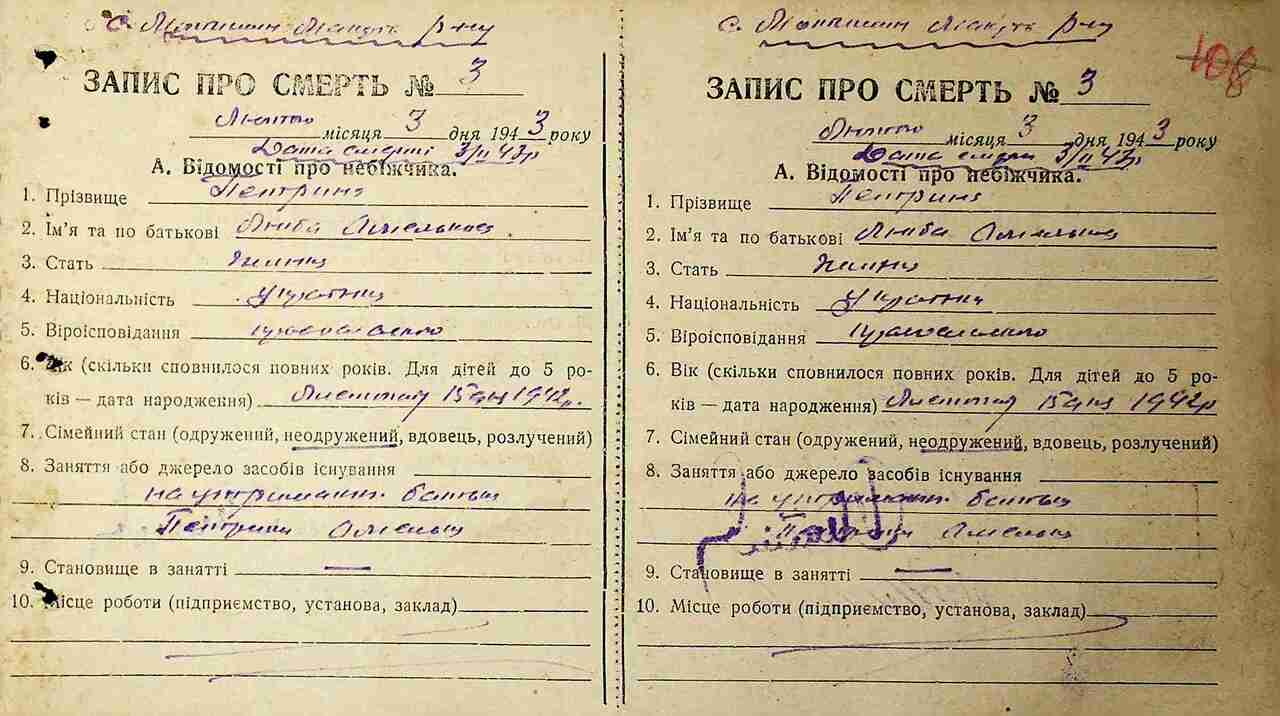 с. р-ну
ЗАПИС ПРО СМЕРТЬ № 3
Лютого місяця 3 дня 1943 року
Дата смерті 3/II 43р
А. Відомості про небіжчика.
1. Прізвище Петрина
2. Ім'я та по батькові Люба Омельківна
3. Стать жіноча
4. Національність українка
5. Віроісповідання православна
6. Вік (скільки сповнилося повних років. Для дітей до 5 ро-
ків — дата народження) 15 дня 1942р.
7. Сімейний стан (одружений, неодружений, вдовець, розлучений)
8. Заняття або джерело засобів існування
на утриманні батька
Петрини Омелька
9. Становище в занятті —
10. Місце роботи (підприємство, установа, заклад)
с. р-ну
108
ЗАПИС ПРО СМЕРТЬ № 3
Лютого місяця 3 дня 1943 року
Дата смерти 3/II 43р
А. Відомості про небіжчика.
1. Прізвище Петрина
2. Ім'я та по батькові Люба Омельківна
3. Стать жіноча
4. Національність українка
5. Віроісповідання православна
6. Вік (скільки сповнилося повних років. Для дітей до 5 ро-
ків — дата народження) 15 дня 1942р
7. Сімейний стан (одружений, неодружений, вдовець, розлучений)
8. Заняття або джерело засобів існування
на утриманні батька
Петрини Омелька
9. Становище в занятті —
10. Місце роботи (підприємство, установа, заклад)